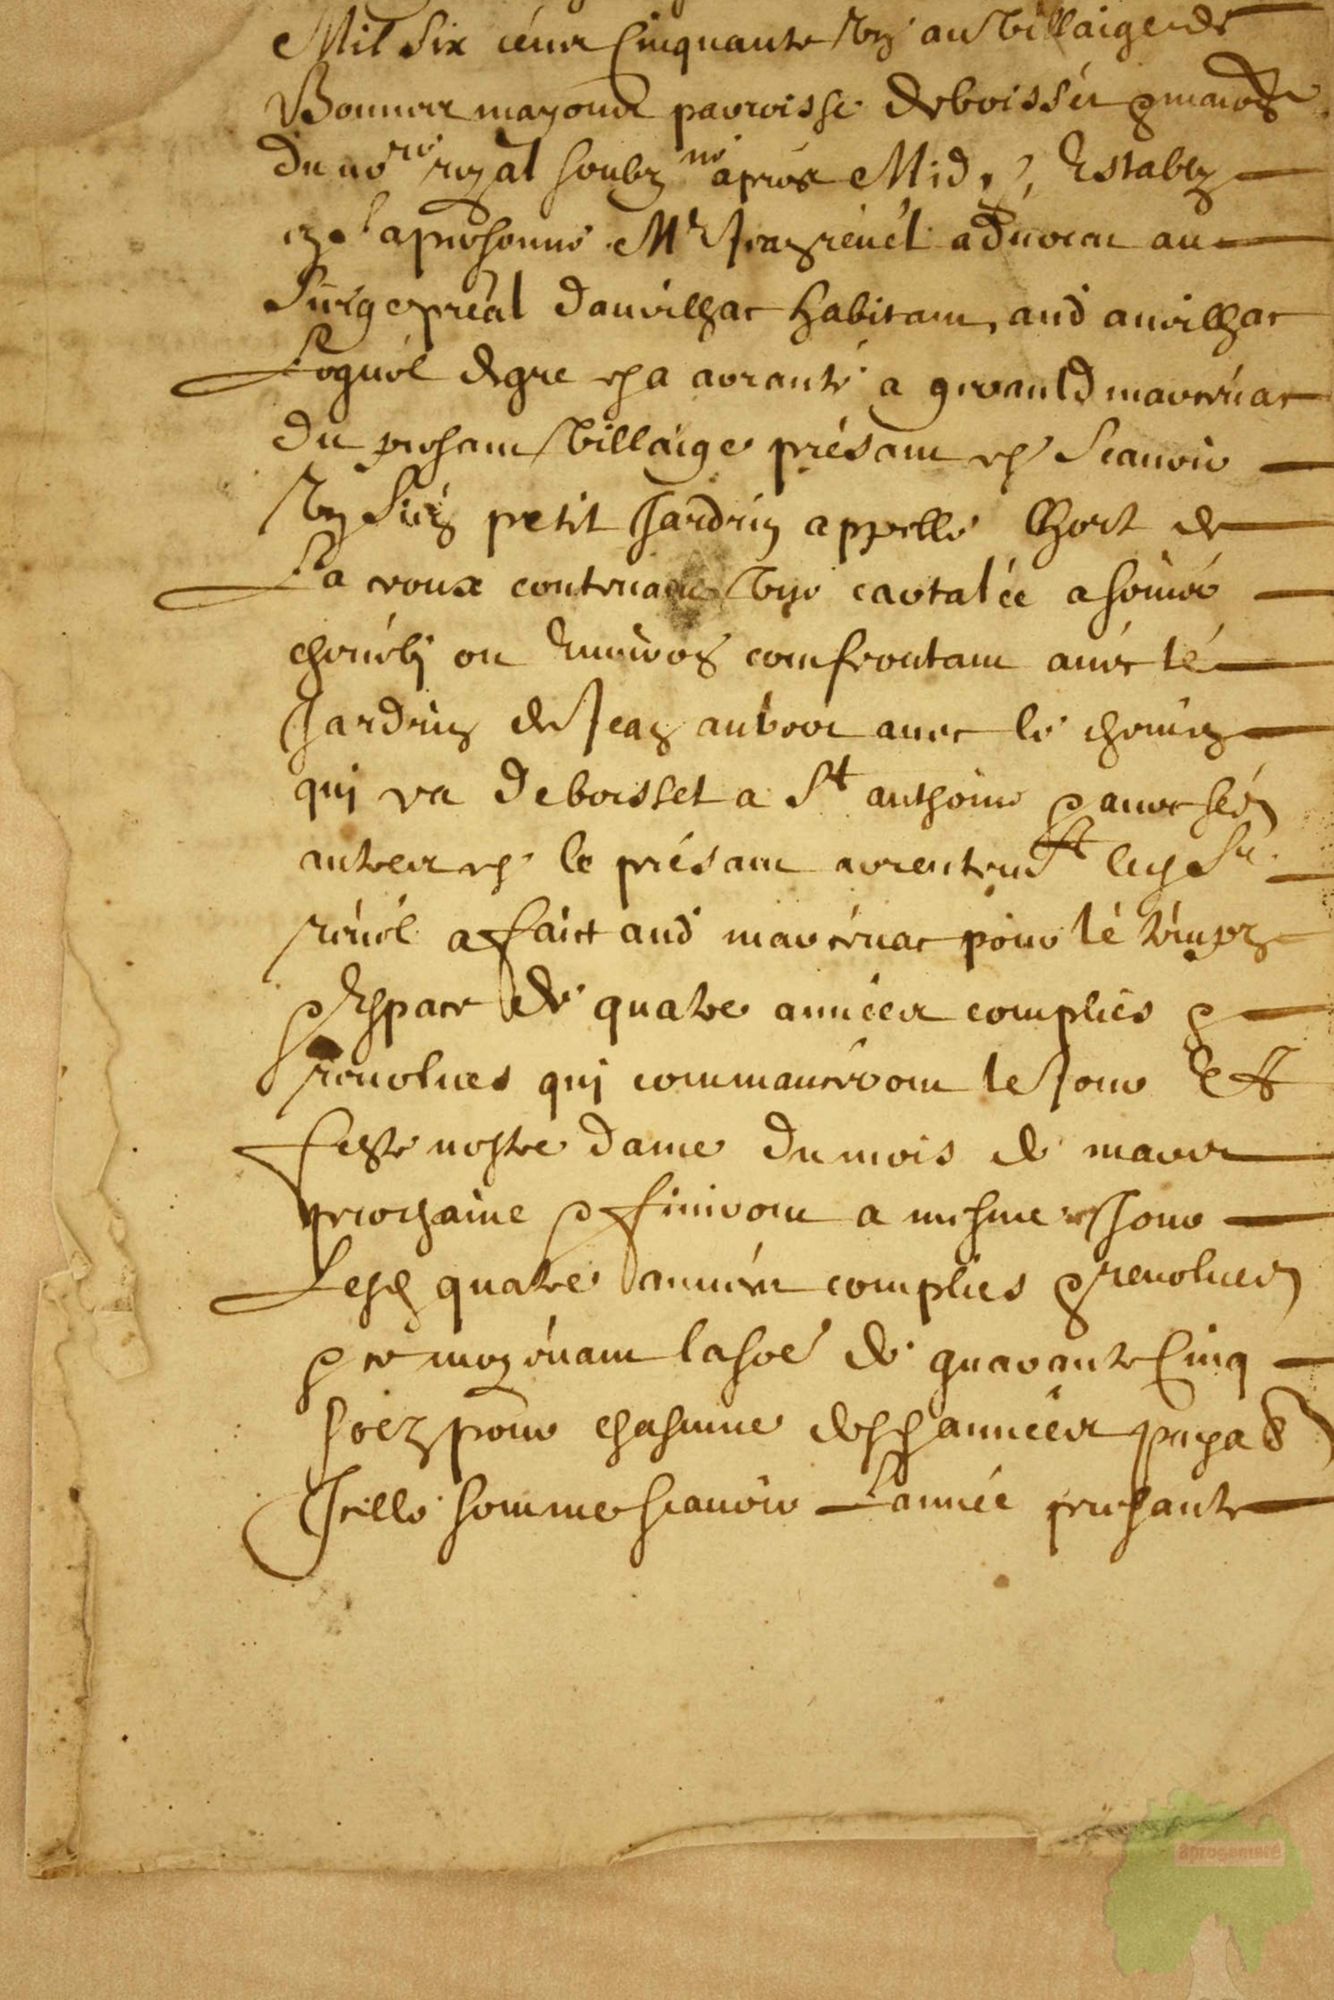 Mil six cens cinquante ung au village de
Bonnes mayoux parroisse de boisset pnt
du nore royal soubz ne apres Midy Establly
en sa personne Mr Jean revel advocat au
siege preal daurilhac habitant aud aurilhac
Loquel de gre a arante a gerauld mavernac
du presant villaige présant Scavoir
ung sien petit Jardrin appelle lhort de
La croux contenant une cartalée a semer
chenebi ou Environ comfrontant avec le
Jardrin de Jean aubour avec le chemin
qui va de boisset a St anthoine avec ses
autres le présant arentement led Sr
revel a faict aud mavernac pour le temps
Espace de quatre annees complies
revolues qui commanceront le Jour et
feste nostre dame du mois de mars
prochaine finiront a mesme Jour
Lesd quatre années complies revolues
moyenant la soe de quarante Cinq
solz pour chascune desd années paya
Icelle somme scavoir L'année presante
aprogemere